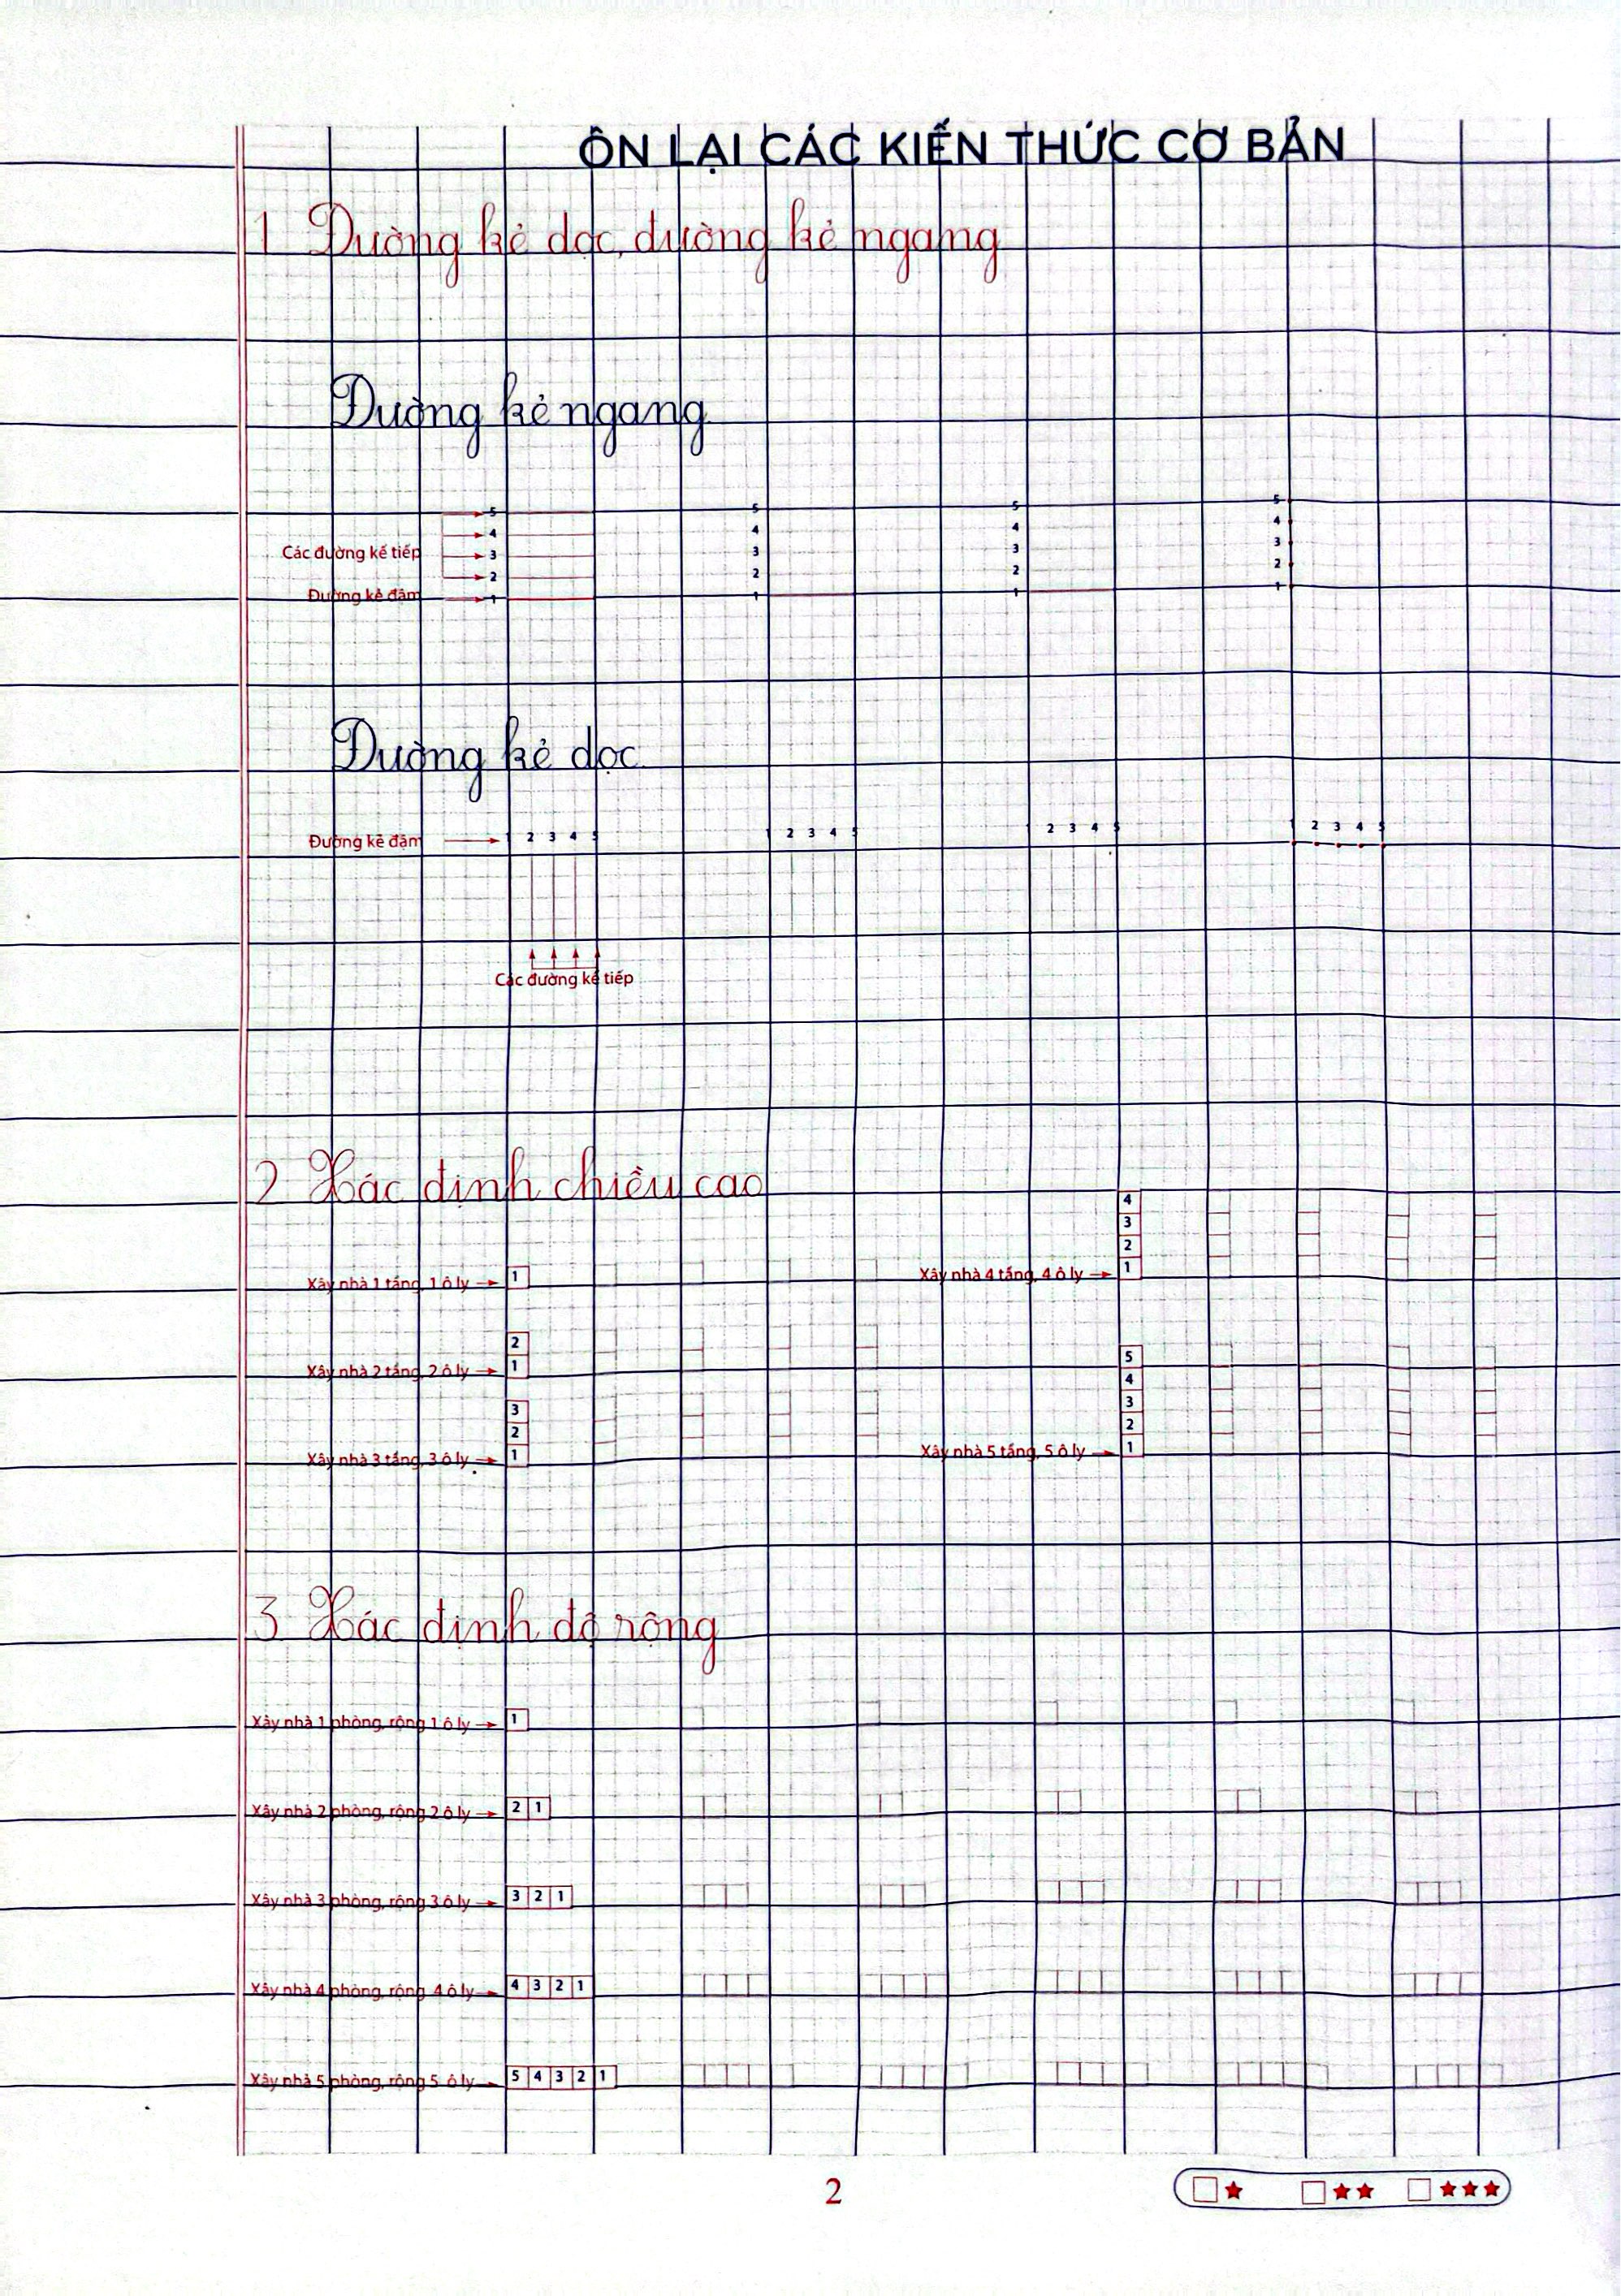 ÔN LẠI CÁC KIẾN THỨC CƠ BẢN
1 Đường kẻ dọc, đường kẻ ngang
Đường kẻ ngang
5 5 5 5
4 4 4 4
Các đường kế tiếp 3 3 3 3
2 2 2 2
Đường kẻ đậm 1 1 1 1
Đường kẻ dọc
Đường kẻ đậm 1 2 3 4 5 1 2 3 4 5 1 2 3 4 5 1 2 3 4 5
Các đường kế tiếp
2 Xác định chiều cao
4
3
2
Xây nhà 1 tầng, 1 ô ly 1 Xây nhà 4 tầng, 4 ô ly 1
2 5
Xây nhà 2 tầng, 2 ô ly 1 4
3 3
2 2
Xây nhà 3 tầng, 3 ô ly 1 Xây nhà 5 tầng, 5 ô ly 1
3 Xác định độ rộng
Xây nhà 1 phòng, rộng 1 ô ly 1
Xây nhà 2 phòng, rộng 2 ô ly 2 1
Xây nhà 3 phòng, rộng 3 ô ly 3 2 1
Xây nhà 4 phòng, rộng 4 ô ly 4 3 2 1
Xây nhà 5 phòng, rộng 5 ô ly 5 4 3 2 1
2